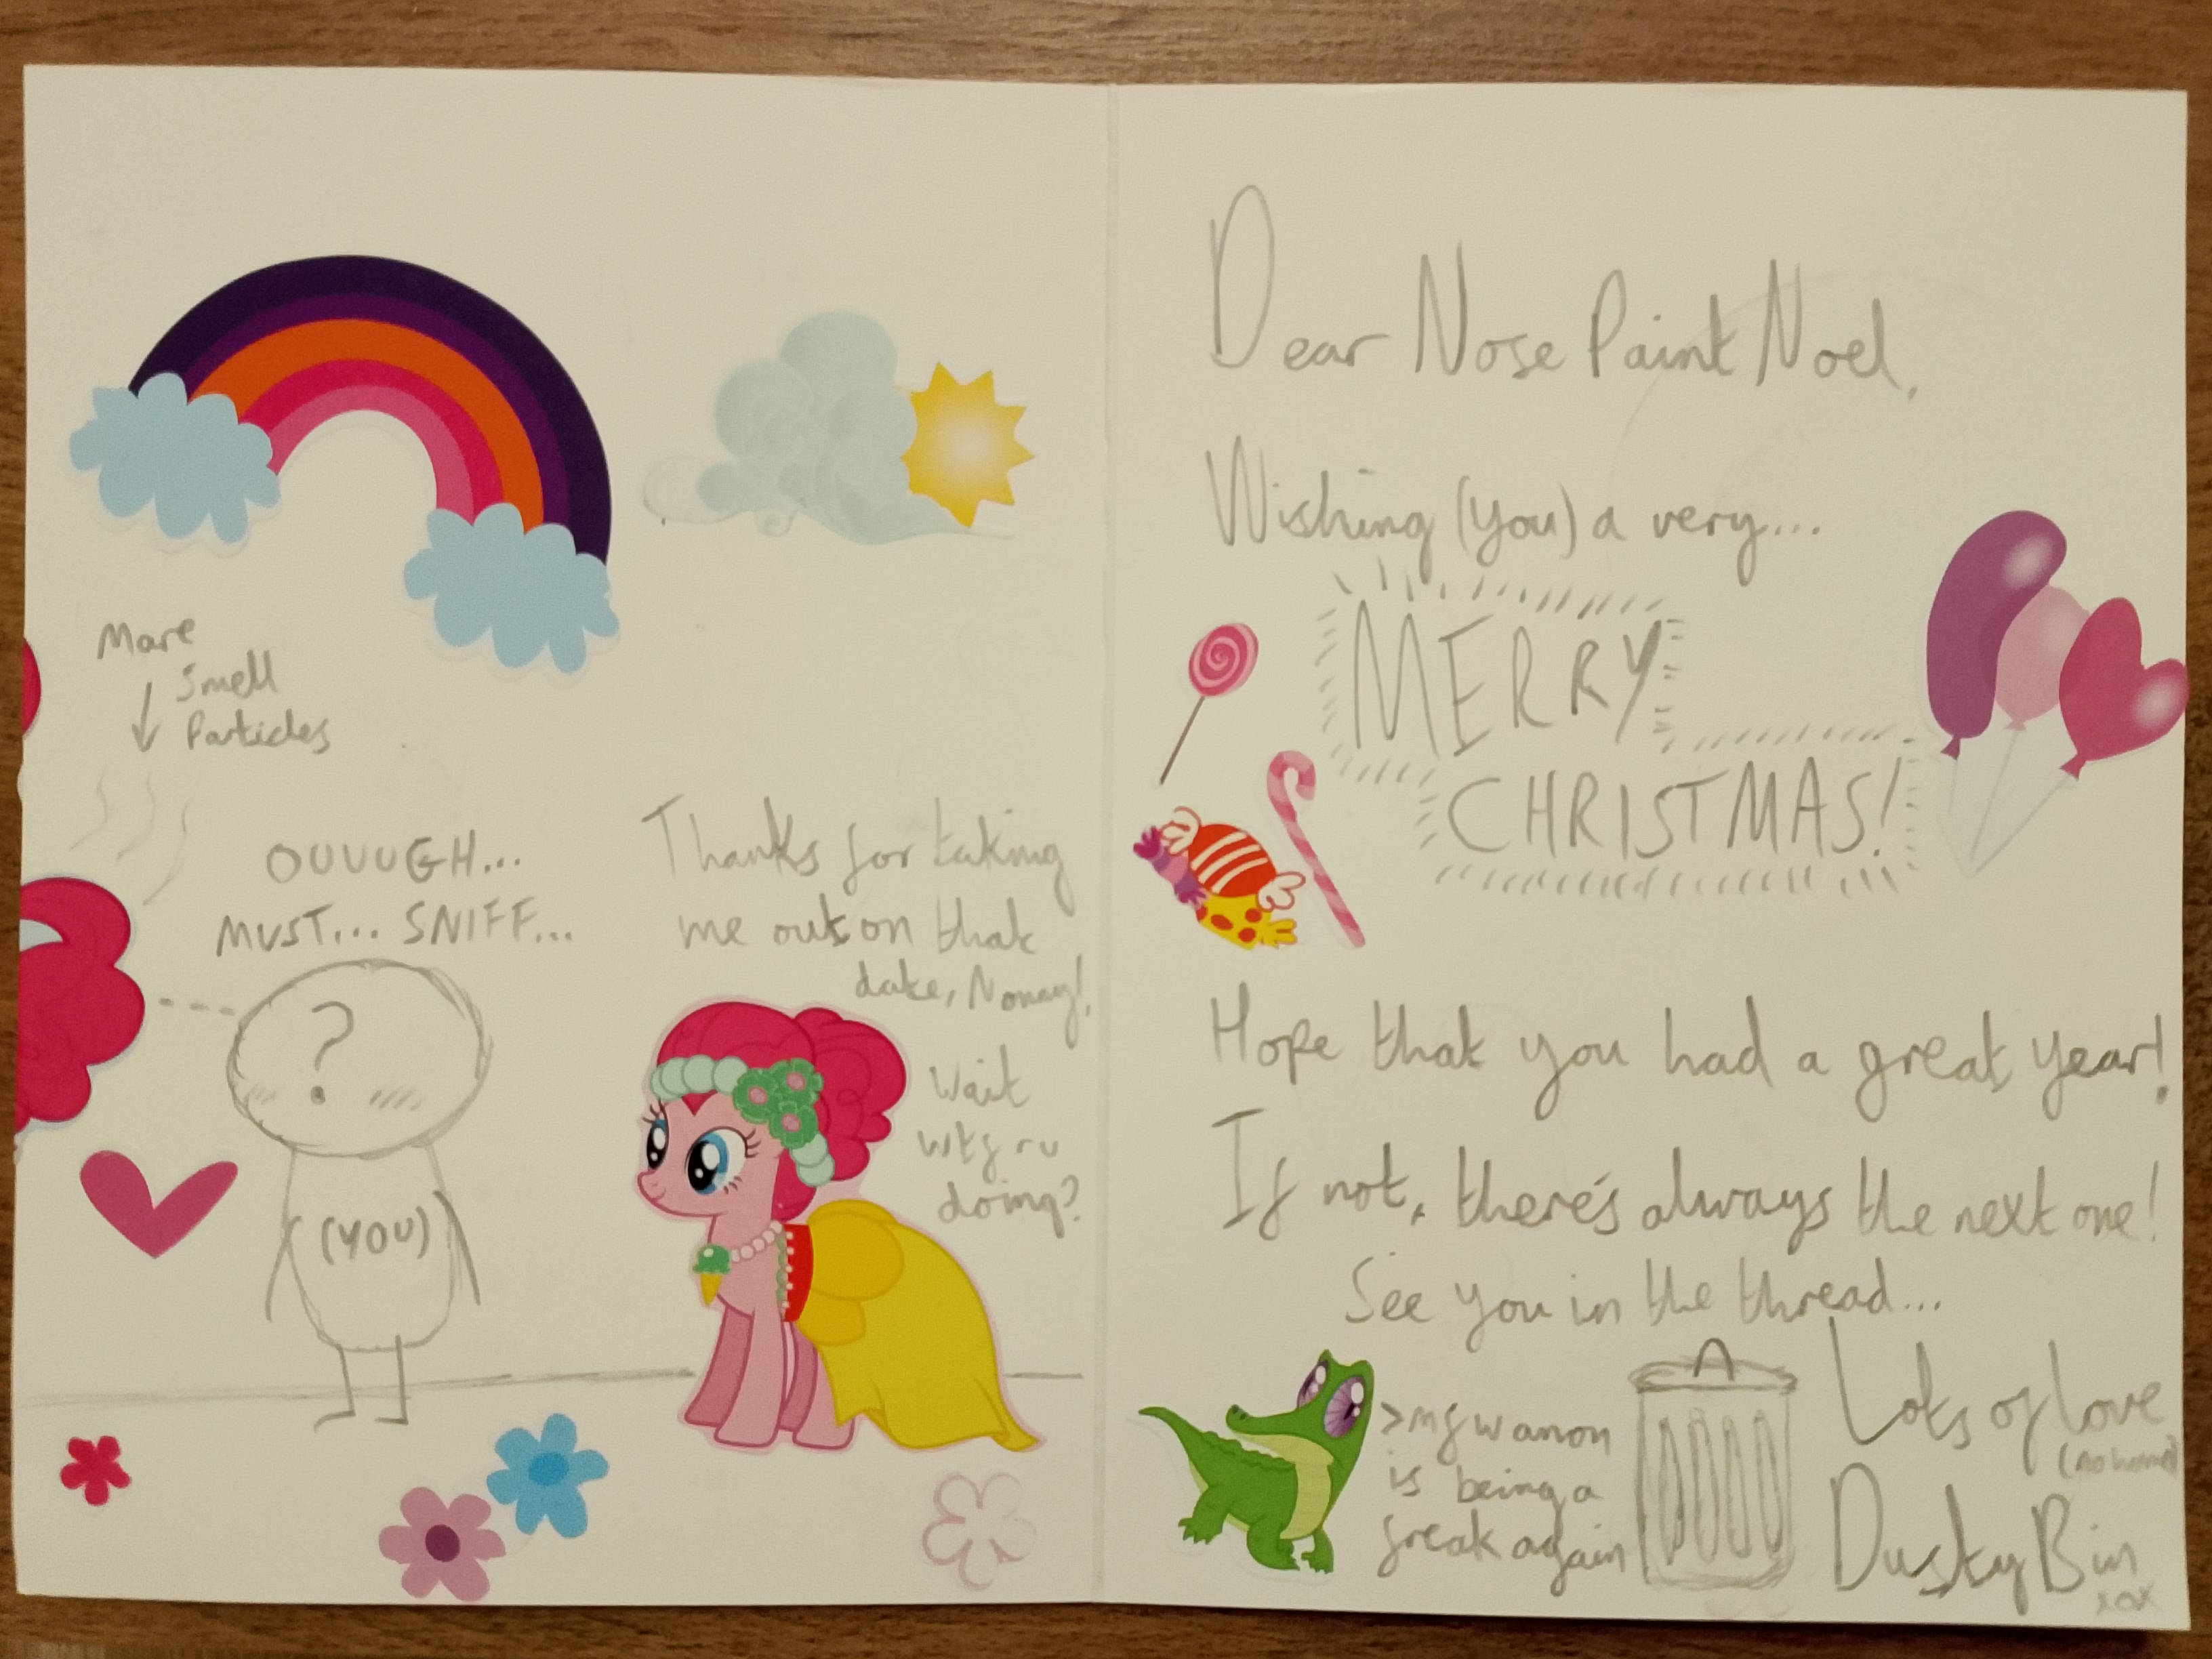 Mare
Smell
Particles
OUUUGH...
MUST... SNIFF...
?
(YOU)
Thanks for taking
me out on that
date, Nonny!
Wait
wtf r u
doing?
Dear Nose Paint Noel,
Wishing (you) a very...
MERRY
CHRISTMAS!
Hope that you had a great year!
If not, there's always the next one!
See you in the thread...
>mfw anon
is being a
freak again
Lots of love
(no homo)
Dusty Bin
xox